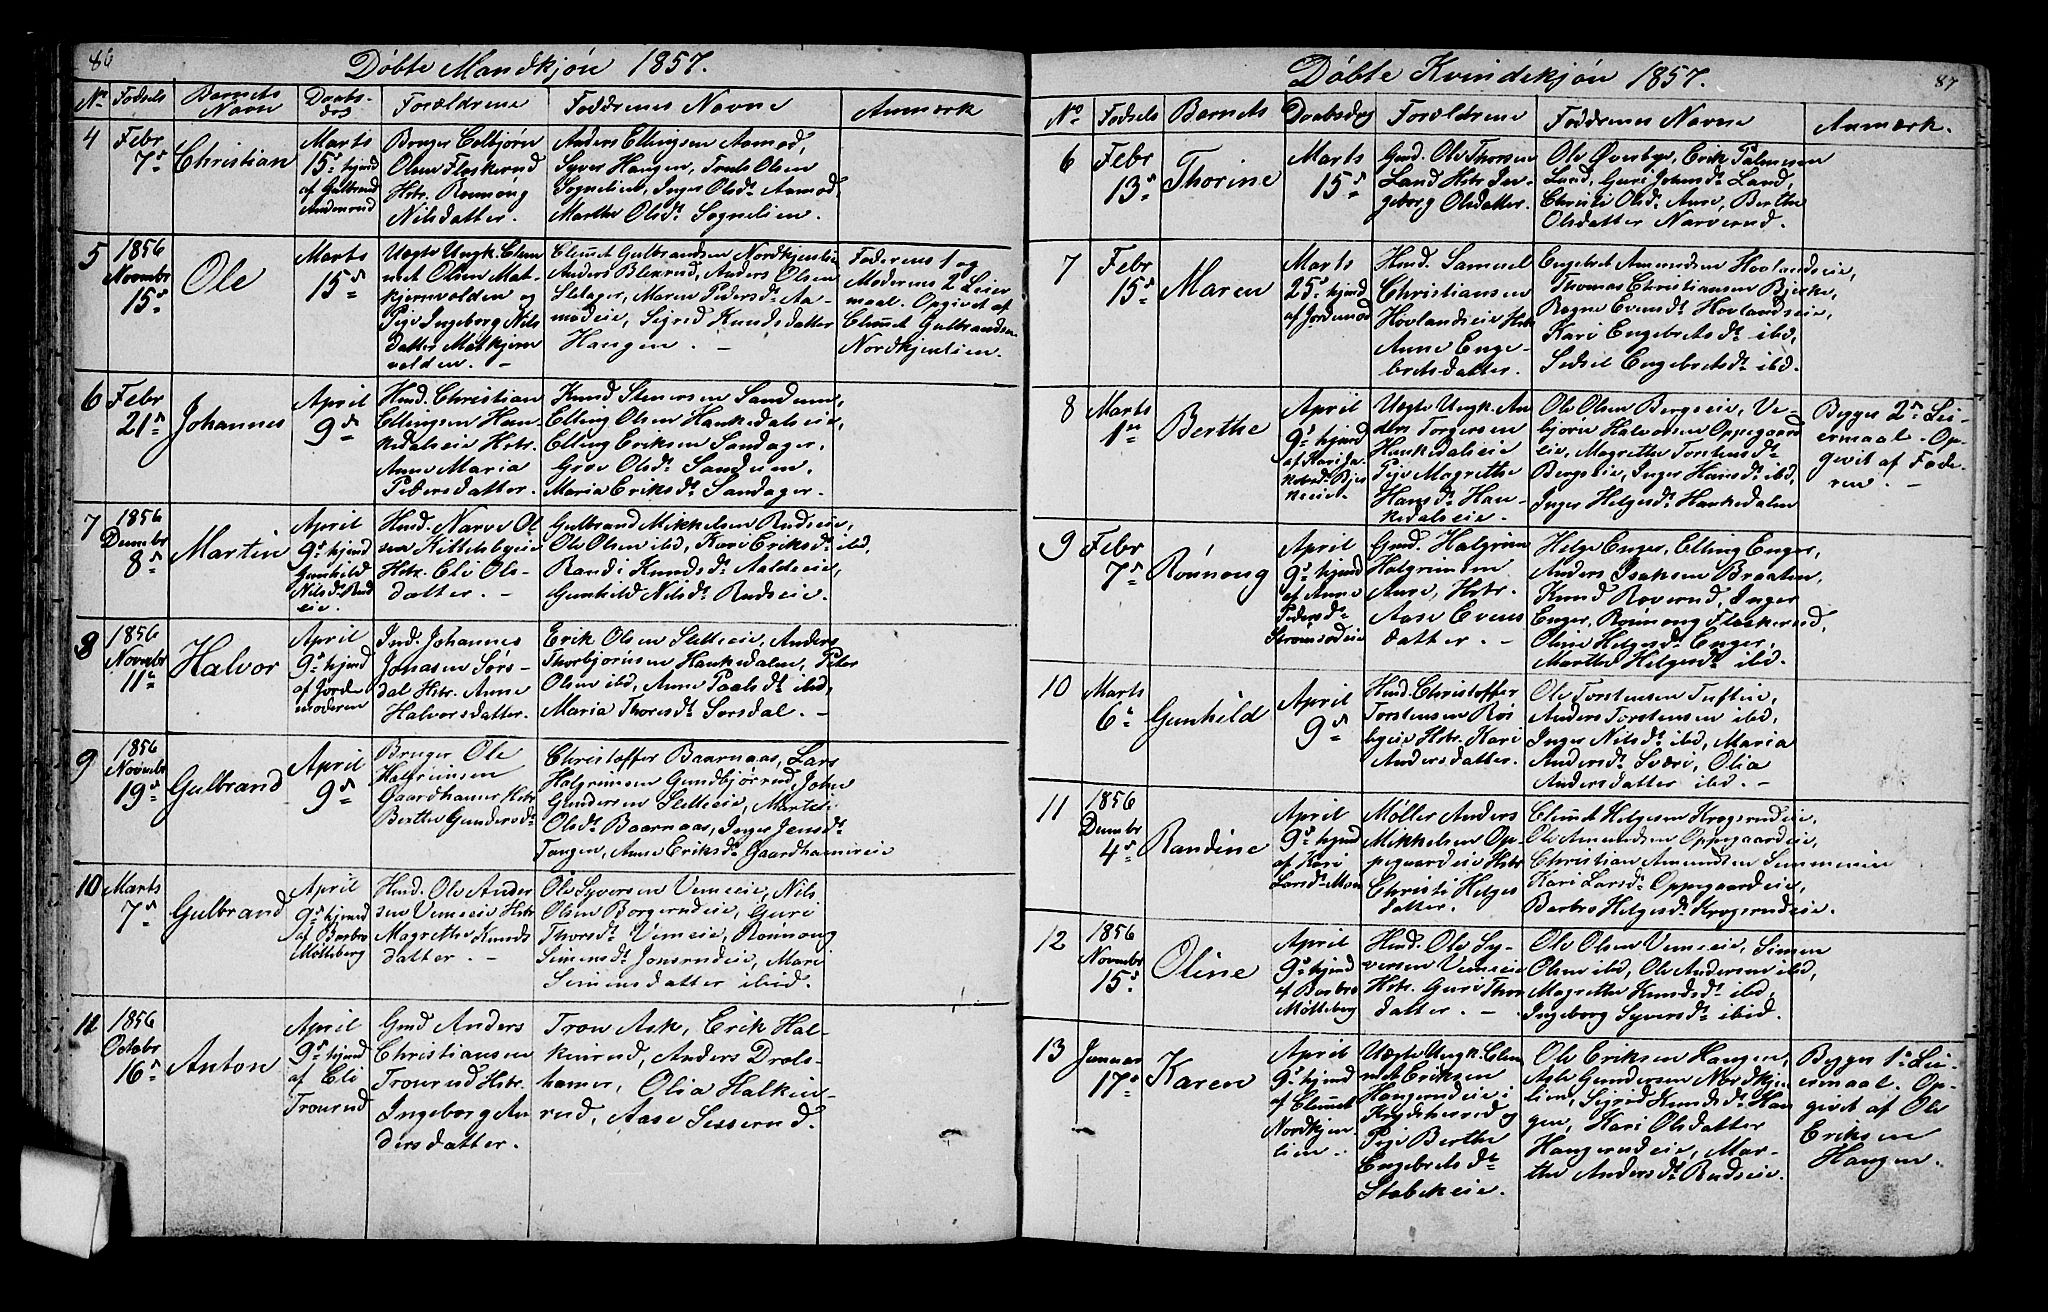 86
Døbte Mandkjøn 1857.
No Fødsels Barnets Navn Daabsdag Forældrene Faddrenes Navne Anmærk
4 Febr 7de Christian Marts 15de hjemd af Gulbrand
Bruger Colbjørn
Olsen Flaskerud
Hstr. Rønnoug
Nilsdatter.
Anders Ellingsen Aamod,
Syver Haugen, Truls Olsen
Sognelien, Inger Olsdr Aamod,
Marthe Olsdr Sognelien.
5 1856 Novembr 15de Ole Marts 15de
Uegte Ungk. Clem
met Olsen Mat-
kjernvolden og
Pige Ingeborg Nils
datter Matkjern
volden. -
Clemet Gulbrandsen Nordkjenlien
Anders Blexrud, Anders Olsen
Sletager, Maren Pedersdr Aa-
modeie, Sigrid Knudsdatter
Haugen. -
Faderens 1 og
Moderens 2 Leier
maal. Opgivet af
Clemet Gulbrandsen
Nordkjenlien.
6 Febr 21de Johannes April 9de
Husd. Christian
Ellingsen Hau-
kedalseie Hstr.
Anne Maria
Pedersdatter.
Knud Stenersen Sandum,
Elling Olsen Haukedalseie,
Elling Eriksen Sandager,
Groe Olsdr Sandum,
Maria Eriksdr Sandager.
7 1856 Decmbr 8de Martin April 9de hjemd Gunhild Nilsdr Rudseie.
Husd. Narve Ol
sen Kittelsbyeie
Hstr. Eli Ols-
datter. -
Gulbrand Mikkelsen Rudseie,
Ole Olsen ibd, Kari Eriksdr ibd,
Randi Knudsdr Aaldseie,
Gunhild Nilsdr Rudseie.
8 1856 Novembr 11te Halvor April 9de hjemd af Jordemoderen
Ind. Johannes
Jonasen Sørs-
dal Hstr. Anne
Halvorsdatter.
Erik Olsen Sletteeie, Anders
Thorbjørnsen Haukedalen, Peter
Olsen ibd, Anne Paalsdr ibd,
Maria Thoresdr Sørsdal. -
9 1856 Novembr 19de Gulbrand April 9de
Bruger Ole
Halgrimsen
Gaardhamer Hstr
Berthe Gundersdr
Christoffer Baarnaas, Lars
Halgrimsen Gundbjørrud, John
Gundersen Sletteeie, Marthe
Olsdr Baarnaas, Inger Jensdr
Tangen, Anne Eriksdr Gaardhamereie
10 Marts 7de Gulbrand April 9de hjemd af Barbro Mølteberg
Husd. Ole Ander
sen Vemeeie Hstr
Magrethe Knuds
datter. -
Ole Syversen Vemeeie, Nils
Olsen Borgerudeie, Guri
Thorsdr Vemeeie, Rønnoug
Simensdr Jonsrudeie, Mari
Simensdatter ibid.
11 1856 Octobr 16de Anton April 9de hjemd af Eli Tronrud
Gmd Anders
Christiansen
Tronrud Hstr.
Ingeborg An
dersdatter.
Tron Ask, Erik Hal-
kinrud, Anders Drols-
hamer, Olia Halkin-
rud, Aase Sisserud.
Døbte Kvindekjøn 1857.
87
No Fødsels Barnets Daabsdag Forældrene Faddrenes Navne Anmærk.
6 Febr 13de Thorine Marts 15de
Gmd. Ole Thorsen
Land Hstr In-
geborg Olsdatter.
Ole Øverbye, Erik Palmesen
Land, Guri Johnsdr Land,
Christi Olsdr Aure, Berthe
Olsdatter Narverud.
7 Febr 15de Maren Marts 25de hjemd af Jordemod
Husd. Samuel
Christiansen
Hovlandseie Hstr
Anne Enge-
bretsdatter.
Engebret Amundsen Hovlandseie,
Thomas Christiansen Bjerke,
Ragne Evensdr Hovlandseie,
Kari Engebretsdr ibd,
Sedsil Engebretsdr ibd.
8 Marts 1ste Berthe April 9de hjemd af Kari Jakobsdr Bjerkeeie.
Uægte Ungk. An
ders Torgersen
Haukedalseie
Pige Magrethe
Hansdr Hau-
kedalseie.
Ole Olsen Bergseie, Ve-
bjørn Halvorsen Oppegaard
eie, Magrethe Torstensdr
Bergseie, Inger Hansdr ibd,
Inger Helgesdr Haukedalen
Begges 2de Lei-
ermaal. Op-
givet af Fade-
ren. -
9 Febr 7de Rønnoug April 9de hjemd af Anne Pedersdr Strømsødeie
Gmd. Halgrim
Halgrimsen
Aure, Hstr.
Aase Evens
datter. -
Helge Enger, Elling Enger,
Anders Isaksen Braaten,
Knud Roverud, Inger
Enger, Rønnoug Flaskerud,
Oline Helgesdr Enger,
Marthe Helgesdr ibd.
10 Marts 6te Gunhild April 9de
Husd. Christoffer
Torstensen Røs
byeie Hstr. Kari
Andersdatter.
Ole Torstensen Tufteie,
Anders Torstensen ibd,
Inger Nilsdr ibd, Maria
Andersdr Sværi, Olia
Andersdatter ibd. -
11 1856 Decmbr 4de Randine April 9de hjemd af Kari Larsdr Moen
Møller Anders
Mikkelsen Op-
pegaardeie Hstr
Christi Helges
datter.
Clemet Helgesen Krogsrudeie,
Ole Amundsen Oppegaardeie,
Christian Amundsen Simmeneie
Kari Larsdr Oppegaardeie,
Barbro Helgesdr Krogsrudeie.
12 1856 Novembr 15de Oline April 9de hjemd af Barbro Mølteberg
Husd. Ole Sy-
versen Vemeeie
Hstr. Guri Thor
datter. -
Ole Olsen Vemeeie, Simen
Olsen ibd, Ole Andersen ibd,
Magrethe Knudsdr ibd,
Ingeborg Syversdr ibid.
13 Januar 17de Karen April 9de hjemd af Clemet Nordkjenlien.
Uægte Ungk. Clem
met Eriksen
Haugerudeie i
Krydsherred og
Pige Berthe
Engebretsdr
Stabekeie.
Ole Eriksen Haugen,
Asle Gundersen Nordkjen
lien, Sigrid Knudsdr Hau
gen, Kari Olsdatter
Haugerudeie, Mar-
the Andersdr Rudseie.
Begges 1ste Lei-
ermaal. Op-
givet af Ole
Eriksen
Haugen.